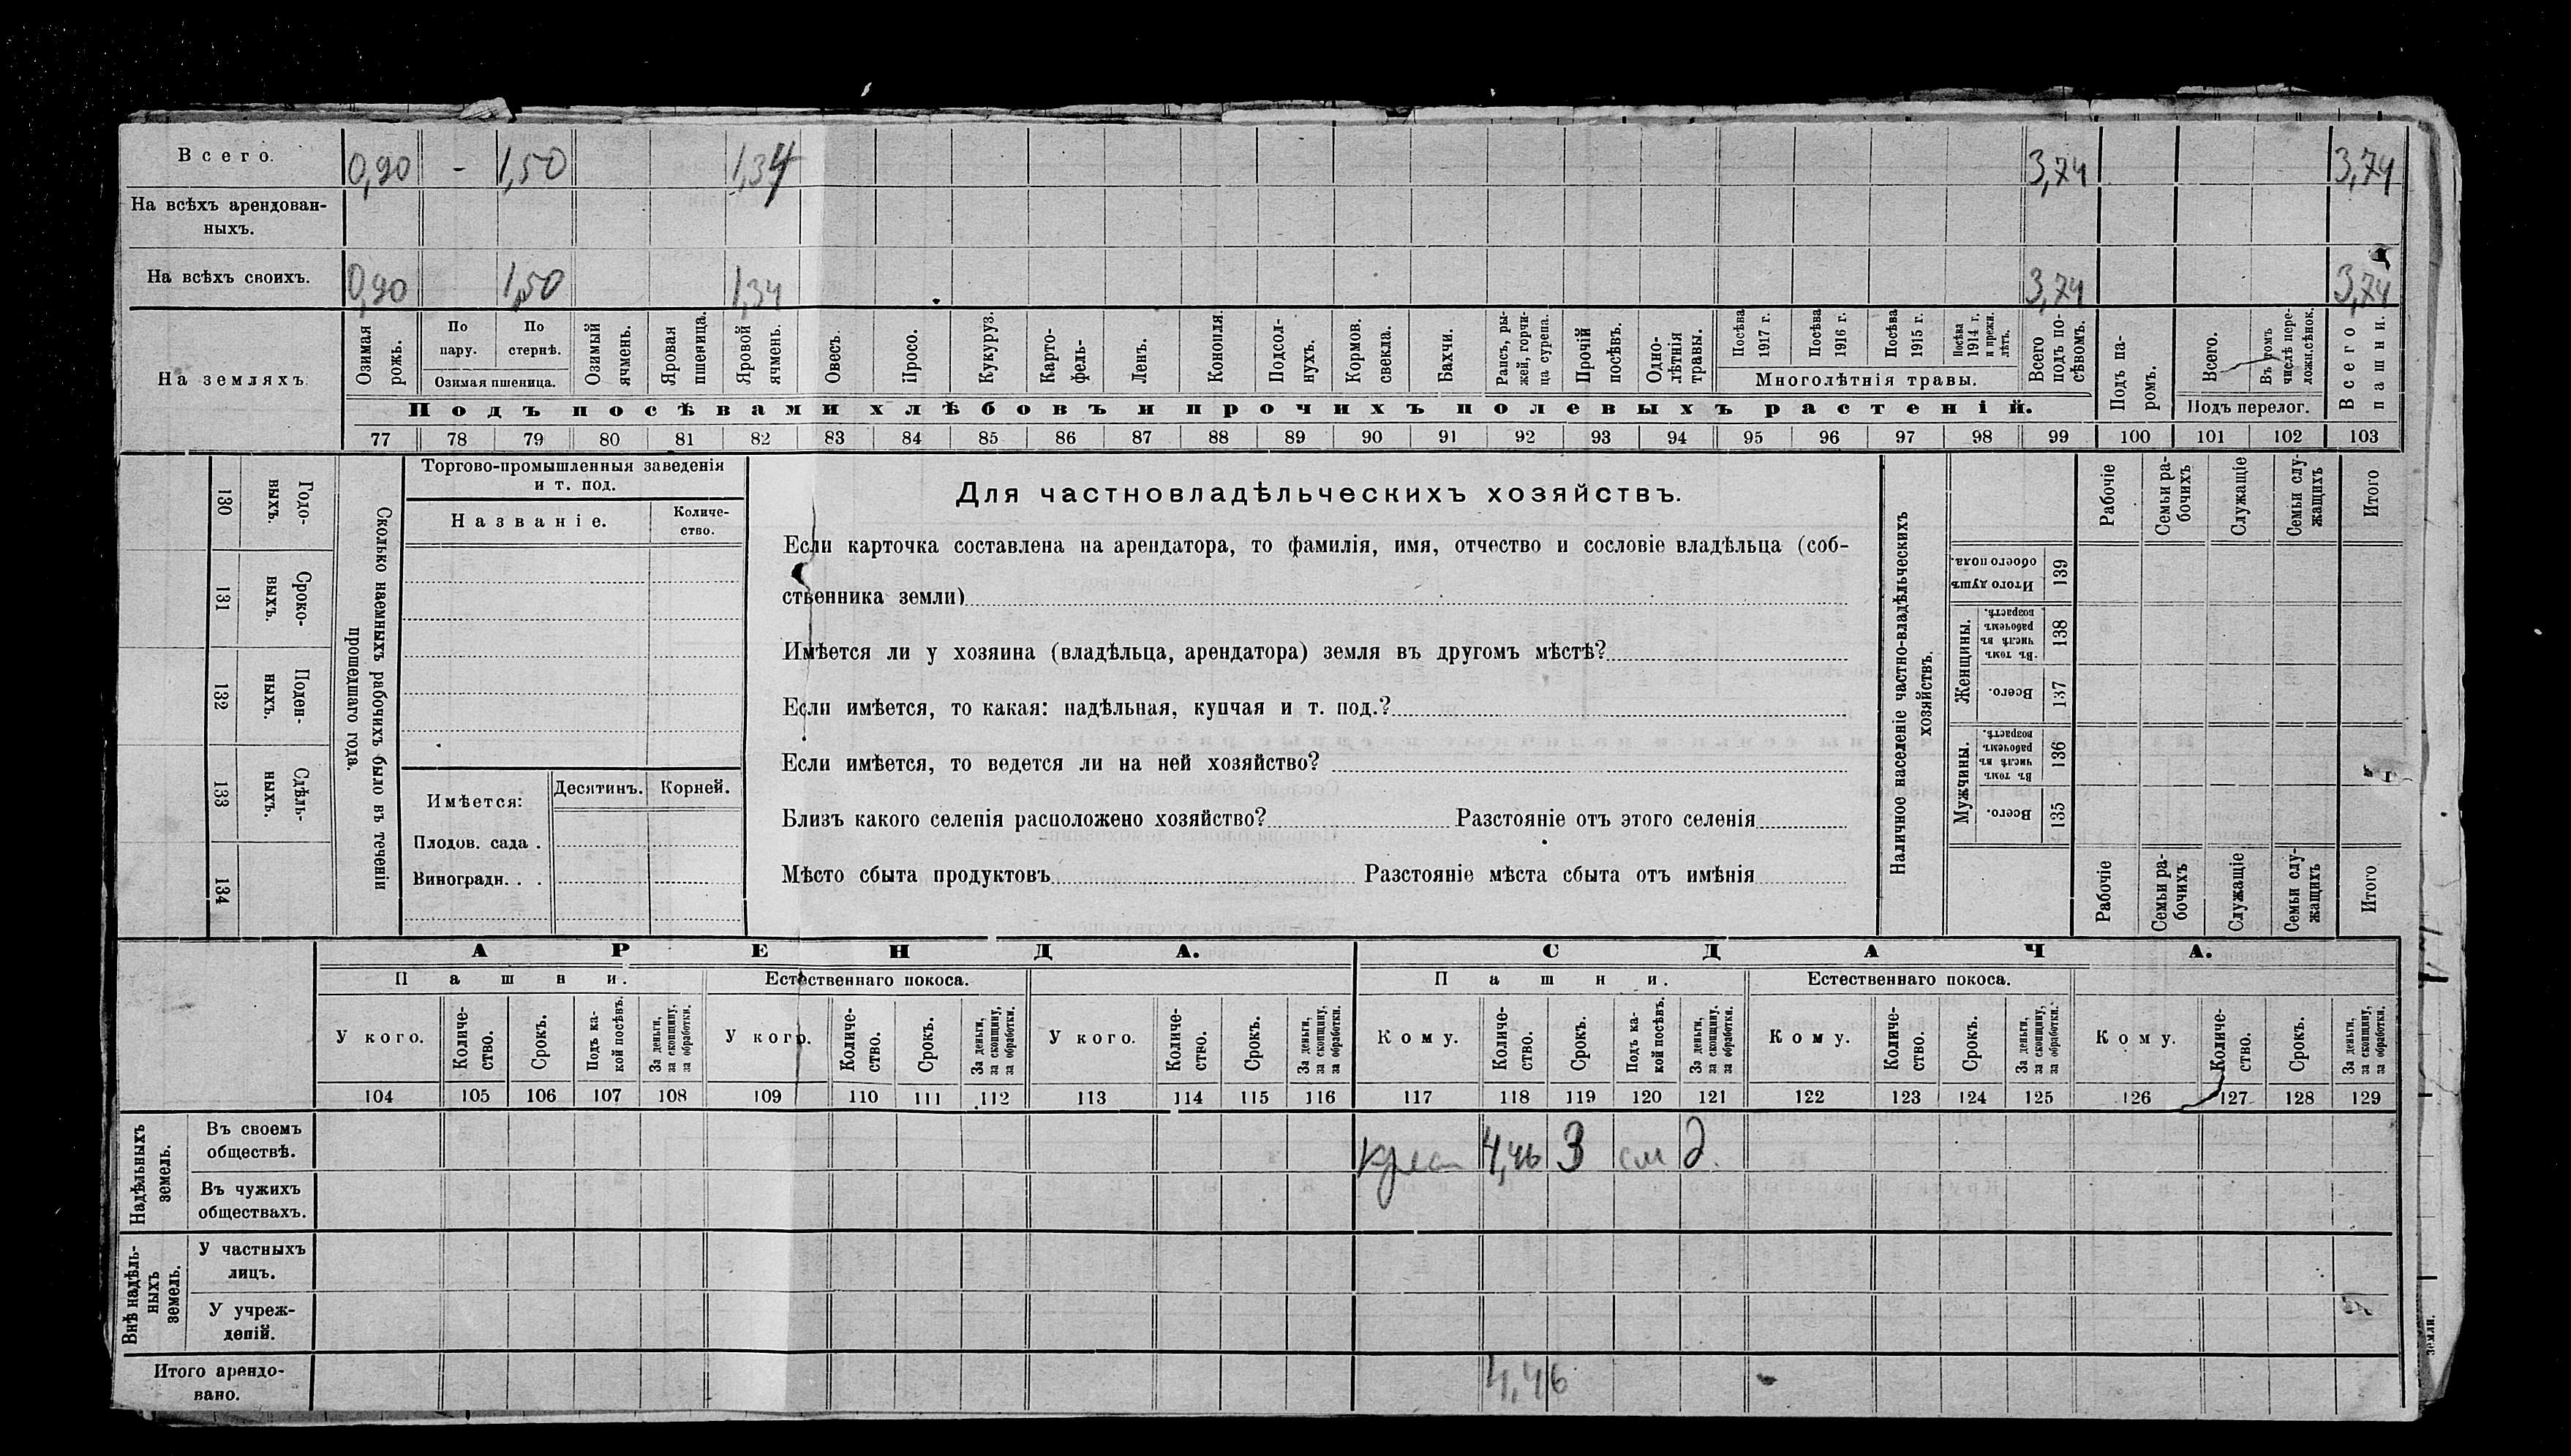 Всего. 0,90 - 1,50 1,34 3,74 3,74
На всѣхъ арендован-
ныхъ.
На всѣхъ своихъ. 0,90 1,50 1,34 3,74 3,74
На земляхъ.
Озимая рожь.
По пару.
По стернѣ.
Озимая пшеница.
Озимый ячмень.
Яровая пшеница.
Яровой ячмень.
Овесъ.
Просо.
Кукуруз.
Карто-
фель-
Ленъ.
Конопля.
Подсол-
нухъ.
Кормов.
свекла.
Бахчи.
Рапсъ, ры-
жей, горчи-
ца сурепа.
Прочій
посѣвъ.
Одно-
лѣтнія
травы.
Посѣва 1917 г.
Посѣва 1916 г.
Посѣва 1915 г.
Посѣва 1914 г. и прежн. лѣтъ.
Многолѣтнія травы.
Всего
подъ по-
сѣвомъ.
Подъ па-
ромъ.
Всего.
Въ томъ
числѣ пере-
ложн.сѣнок.
Подъ перелог.
Всего
пашни.
Подъ посѣвами хлѣбовъ и прочихъ полевыхъ растеній.
77 78 79 80 81 82 83 84 85 86 87 88 89 90 91 92 93 94 95 96 97 98 99 100 101 102 103
Сколько наемныхъ рабочихъ было въ теченіи
прошедшаго года.
Годо-
выхъ.
130
Сроко-
выхъ.
131
Поден-
ныхъ.
132
Сдѣль-
ныхъ.
133
134
Торгово-промышленныя заведенія
и т. под.
Названіе.
Количе-
ство.
Имѣется:
Десятинъ.
Корней.
Плодов. сада .
Виноградн. . .
Для частновладѣльческихъ хозяйствъ.
Если карточка составлена на арендатора, то фамилія, имя, отчество и сословіе владѣльца (соб-
ственника земли)
Имѣется ли у хозяина (владѣльца, арендатора) земля въ другомъ мѣстѣ?
Если имѣется, то какая: надѣльная, купчая и т. под.?
Если имѣется, то ведется ли на ней хозяйство?
Близъ какого селенія расположено хозяйство? Разстояніе отъ этого селенія
Мѣсто сбыта продуктовъ Разстояніе мѣста сбыта отъ имѣнія
Наличное населеніе частно-владѣльческихъ
хозяйствъ.
Рабочіе
Семьи ра-
бочихъ
Служащіе
Семьи слу-
жащихъ
Итого
Итого душъ
обоего пола.
139
Женщины.
Въ томъ
числѣ въ
рабочемъ
возрастѣ.
138
Всего.
137
Мужчины.
Въ томъ
числѣ въ
рабочемъ
возрастѣ.
136
Всего.
135
Рабочіе
Семьи ра-
бочихъ
Служащіе
Семьи слу-
жащихъ
Итого
АРЕНДА. СДАЧА.
Пашни. Естественнаго покоса. Пашни. Естественнаго покоса.
У кого.
Количе-
ство.
Срокъ.
Подъ ка-
кой посѣвъ.
За деньги,
за скопщину,
за обработки.
У кого.
Количе-
ство.
Срокъ.
За деньги,
за скопщину,
за обработки.
У кого.
Количе-
ство.
Срокъ.
За деньги,
за скопщину,
за обработки.
Кому.
Количе-
ство.
Срокъ.
Подъ ка-
кой посѣвъ.
За деньги,
за скопщину.
за обработки.
Кому.
Количе-
ство.
Срокъ.
За деньги,
за скопщину,
за обработки.
Кому.
Количе-
ство.
Срокъ.
За деньги,
за скопщину,
за обработки.
104 105 106 107 108 109 110 111 112 113 114 115 116 117 118 119 120 121 122 123 124 125 126 127 128 129
Надѣльныхъ
земель.
Въ своемъ
обществѣ.
4,46 3 д.
Въ чужихъ
обществахъ.
Внѣ надѣль-
ныхъ
земель.
У частныхъ
лицъ.
У учреж-
деній.
Итого арендо-
вано.
4,46
земли.